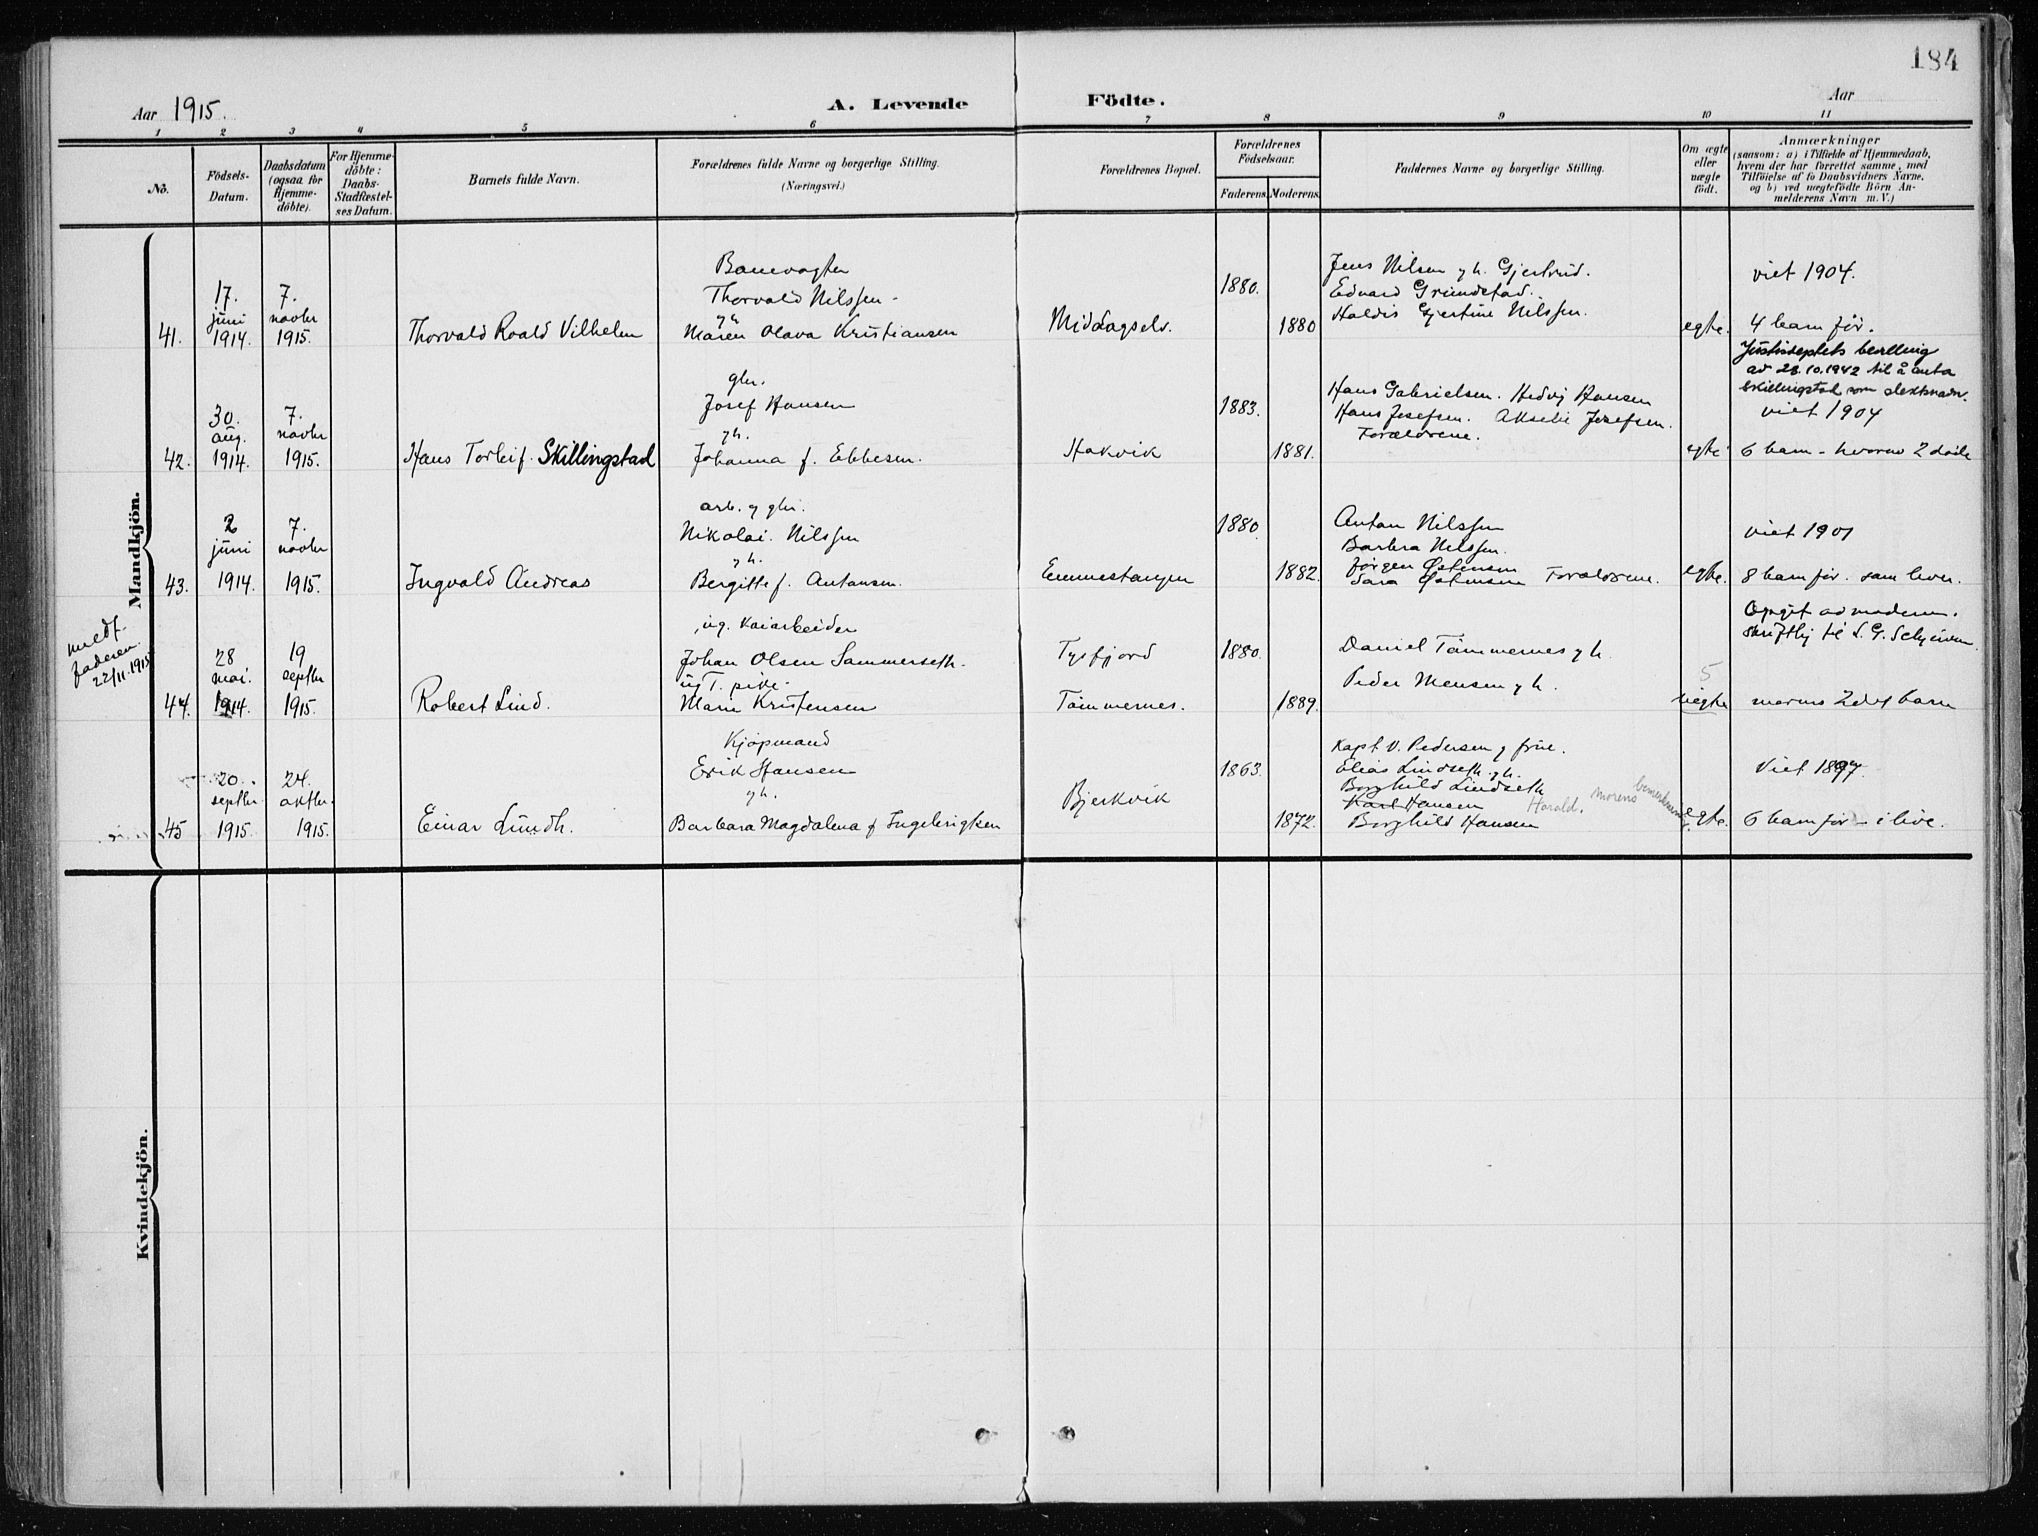 184
Aar 1915.
A. Levende Födte.
Aar
1 2 3 4 5 6 7 8 9 10 11
No.
Födsels-
Datum.
Daabsdatum
(ogsaa for
Hjemme-
döbte).
For Hjemme-
döbte:
Daabs-
Stadfæstel-
ses Datum.
Barnets fulde Navn.
Forældrenes fulde Navne og borgerlige Stilling.
(Næringsvei.)
Forældrenes Bopæl.
Forældrenes
Födselsaar.
Faderens. Moderens.
Faddernes Navne og borgerlige Stilling.
Om ægte
eller
uægte
födt.
Anmærkninger
(saasom: a) i Tilfælde af Hjemmedaab,
hvem der har forrettet samme, med
Tilföielse af to Daabsvidners Navne,
og b) ved uægtefödte Börn An-
melderens Navn m. V.)
Mandkjön.
41.
17.
juni
1914.
7.
novbr
1915.
Thorvald Roald Vilhelm
Banevogter
Thorvald Nilssen
gh
Maren Olava Kristiansen
Middagselv.
1880.
1880
Jens Nilsen gh. Gjertrud.
Edvard Grundstad.
Haldis Gjertine Nilssen.
egte.
viet 1904.
4 barn før.
42.
30.
aug.
1914.
7.
novbr
1915.
Hans Torleif. Skillingstad
gbr.
Josef Hansen
gh.
Johanna f. Ebbesen.
Hakvik
1883.
1881.
Hans Gabrielsen. Hedvig Hansen
Hans Josefsen. Akselie Josefsen.
Forældrene.
egte
bevilling
av 28.10.1942 til å anta
Skillingstad som slektsnavn.
viet 1904
6 barn - hvorav 2 døde
43.
2
juni
1914.
7.
novbr
1915.
Ingvald Andreas
arb. g gbr.
Nikolai. Nilssen
gh.
Bergitte f. Antonsen.
Emmestangen
1880
1882.
Anton Nilssen
Barbra Nilssen.
Jørgen Østensen
Sara Østensen Forældrene.
egte.
viet 1901
8 barn før. som lever.
medf.
faderen.
22/11.1915
44.
28
mai.
1914.
19
septbr
1915.
Robert Lind.
ug. Kaiarbeider
Johan Olsen Sammerseth.
ugT. pike.
Marie Kristensen
Tysfjord
Tømmernes.
1880.
1889.
Daniel Tømmernes gh.
Peder Mensen gh.
5
uegte
Opgit av moderen.
skriftlig til S. G.
morens 2det barn
45
20.
septbr.
1915.
24.
oktbr.
1915.
Einar Lundh.
Kjøpmand
Erik Hansen
gh.
Barbara Magdalena f Ingebrigtsen
Bjerkvik
1863.
1872.
Kapt V. Pedersen g frue.
Elias Lindseth gh.
Borghild Lindseth
Karl Hansen Harald. morens
Borghild Hansen
egte.
Viet 1897.
6 barn før - i live.
Kvindekjön.